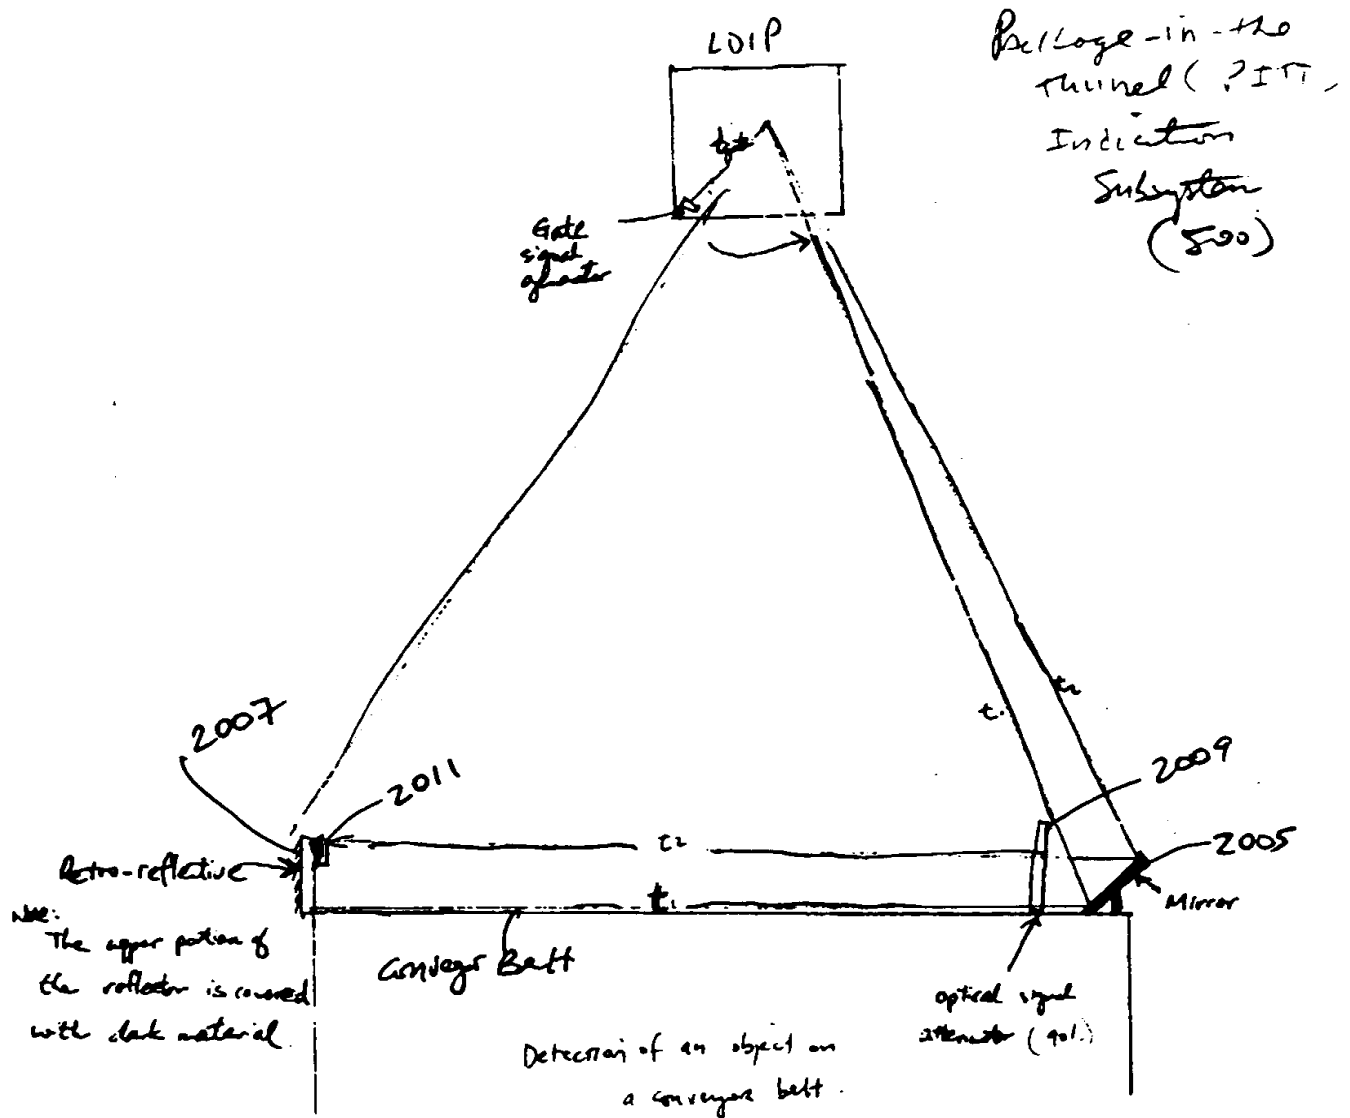 LDIP
Package-in-the
Tunnel (PITT,
Indication
Subsystem
(500)
Gate
signal
generator
t1
t2
2007
2011
2009
2005
t2
Retro-reflective
t1
Mirror
Note:
The upper portion of
the reflector is covered
with dark material
Conveyor Belt
optical signal
attenuator (90%)
Detection of an object on
a conveyor belt.